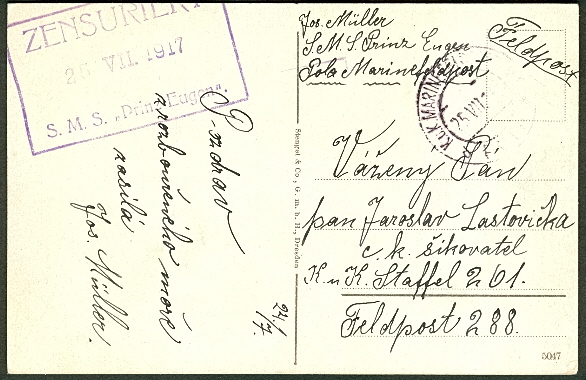 ZENSURIERT
26 VII. 1917
S. M. S. „Prinz Eugen".
Pozdrav
z rozbouřeného moře
zasílá
Jos. Müller.
24/7
Stengel & Co., G. m. b. H., Dresden
Jos. Müller
S. M. S. Prinz Eugen
Pola Marinefeldpost
Feldpost
K.u.K. MARINE
26 VII
Vážený Pán
pan Jaroslav Lastovička
c. k. šikovatel
K. u K. Staffel 201.
Feldpost 288.
5047